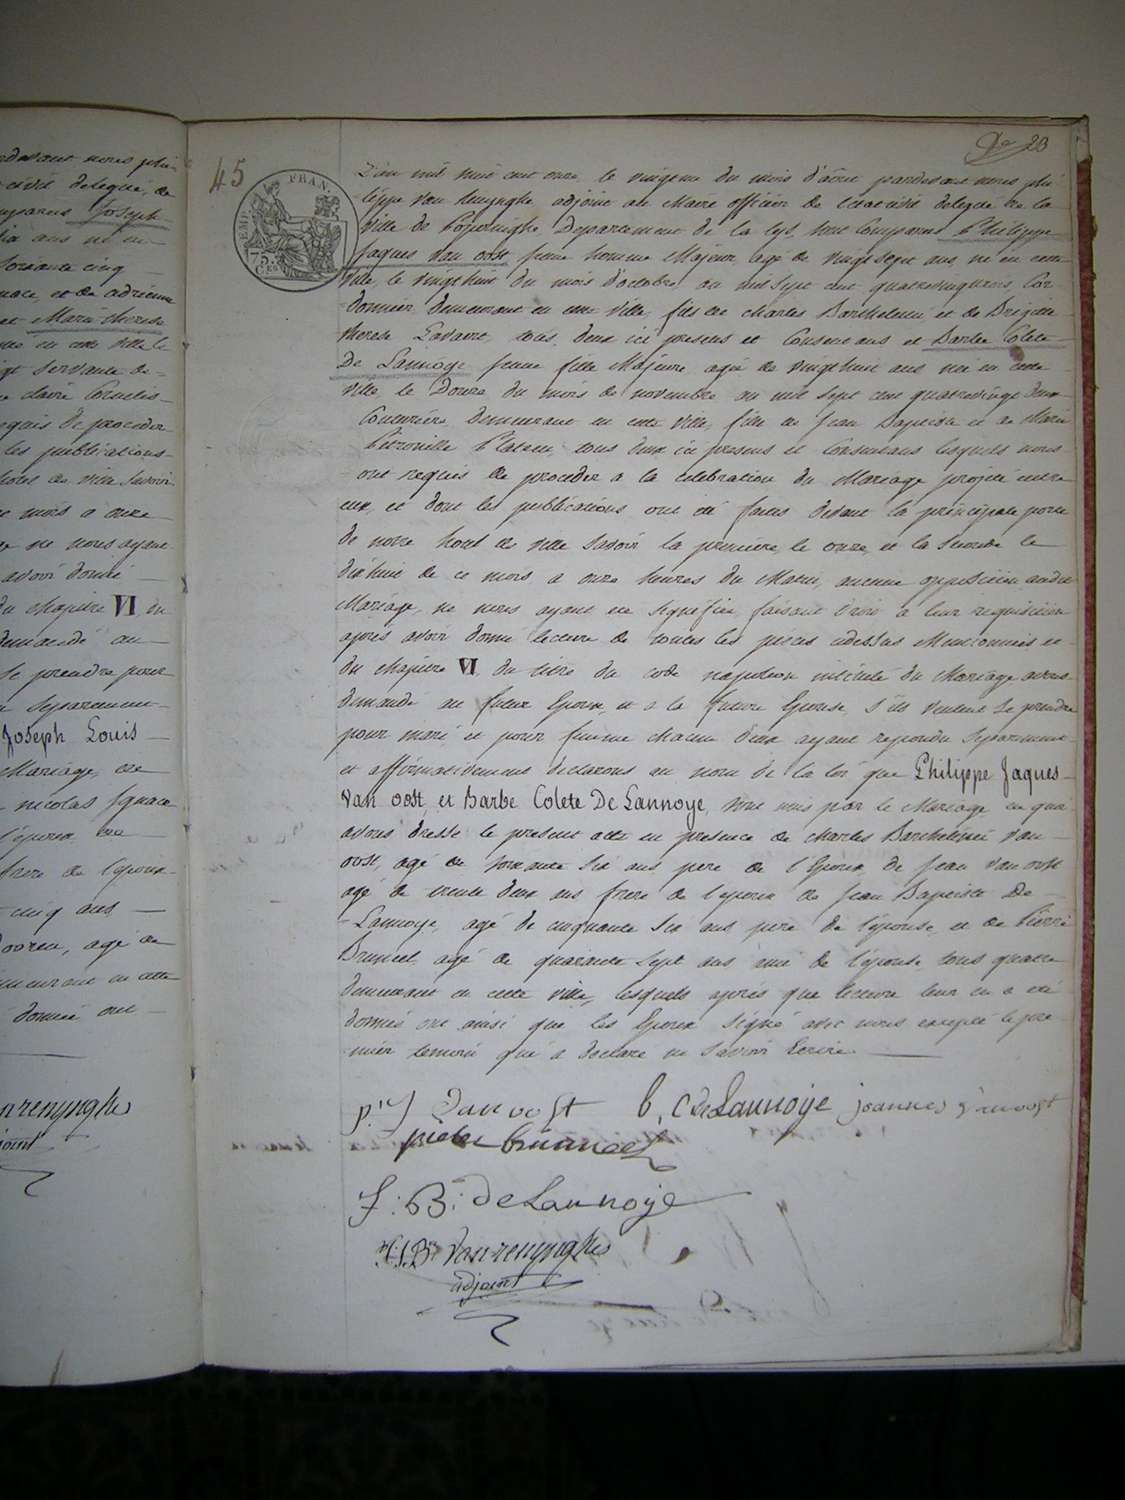 23
45
FRAN.
75.
L'an mil huit cent onze, le vingieme du mois d'août pardevant nous phi-
lippe van Renynghe adjoint au Maire officier de l'état civil delegué de la
Ville de Poperinghe Departement de la Lys, sont Comparus Philippe
Jaques van oost jeune homme Majeur, agé de vingt sept ans, né en cette
Ville, le vingt huit du mois d'octobre an mil sept cent quatrevingt trois, Cor-
donnier demeurant en cette Ville, fils de Charles Barthelemi et de Brigitte
therese tous deux ici presens et Consentans et Barbe Colete
De Lannoye jeune fille Majeure, agée de vingt huit ans née en cette
Ville, le Douze du mois de novembre an mil sept cent quatrevingt deux
Couturière, demeurant en cette Ville, fille de Jean Baptiste et de Marie
Petronille tous deux ici presens et Consentans lesquels nous
ont requis de proceder a la celebration du Mariage projeté entre
eux, et dont les publications ont été faites devant la principale porte
de notre hotel de ville Savoir la premiere, le onze, et la Seconde le
dixhuit de ce mois a onze heures du Matin, aucune opposition audit
Mariage, ne nous ayant été signifiée faisant droit a leur requisition
apres avoir donné lecture de toutes les pièces cidessus Mentionnées et
du chapitre VI du titre du code napoleon intitulé du Mariage avons
demandé au futur Epoux, et a la future Epouse, s'ils veulent se prendre
pour mari et pour femme chacun d'eux ayant repondu Separement
et affirmativement declarons au nom de la loi que Philippe Jaques
Van oost et Barbe Colete De Lannoye, sont unis par le Mariage en quoi
avons dressé le present acte en presence de Charles Barthelemi van
oost, agé de soixante Six ans, pere de l'Epoux, de Jean van oost
agé de trente deux ans frere de l'epoux de Jean Baptiste De
Lannoye, agé de cinquante Six ans père de l'épouse, et de Pierre
Bruneel, agé de quarante Sept ans ami de l'épouse tous quatre
demeurant en cette ville, lesquels après que lecture leur en a été
donnée ont ainsi que les Epoux signé avec nous excepté le pre-
mier temoin qui a declaré ne savoir Ecrire
p. J van oost b, C de Lannoye joannes van oost
pieter bruneel
J: B: de Lannoye
Vanrenynghe
adjoint
civil delegué, de
Joseph
ans né en
Soixante cinq
et de adrienne
et Marie therese
née en cette ville le
servante de
requis de proceder
les publications
hotel de ville savoir
mois a onze
ne nous ayant
avoir donné
du chapitre VI du
demandé au
Se prendre pour
Separement
Joseph Louis
Mariage, en
nicolas Ignace
l'epoux, de
frere de l'epoux
cinq ans
agé de
demeurant en cette
donnée ont
Vanrenynghe
adjoint